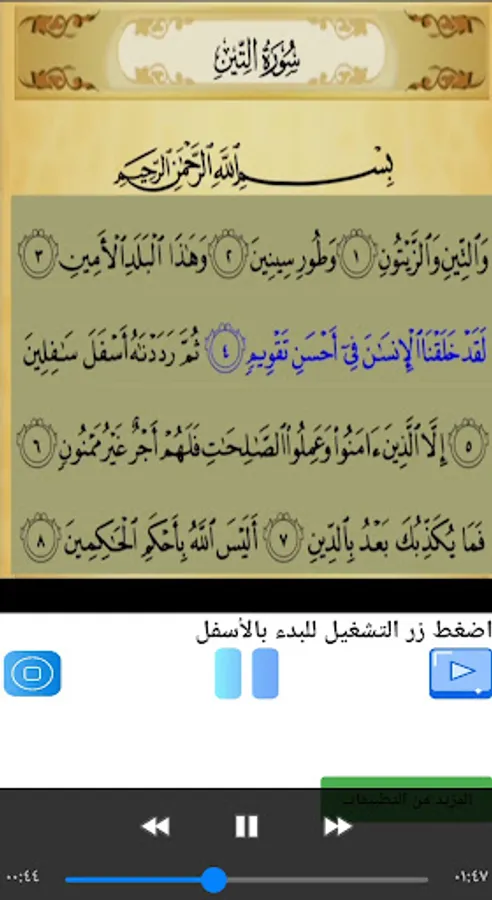 سُورَةُ التِّينِ
بِسْمِ اللَّهِ الرَّحْمَٰنِ الرَّحِيمِ
وَالتِّينِ وَالزَّيْتُونِ ١ وَطُورِ سِينِينَ ٢ وَهَٰذَا الْبَلَدِ الْأَمِينِ ٣
لَقَدْ خَلَقْنَا الْإِنسَٰنَ فِىٓ أَحْسَنِ تَقْوِيمٍ ٤ ثُمَّ رَدَدْنَٰهُ أَسْفَلَ سَٰفِلِينَ
٥ إِلَّا الَّذِينَ ءَامَنُوا۟ وَعَمِلُوا۟ الصَّٰلِحَٰتِ فَلَهُمْ أَجْرٌ غَيْرُ مَمْنُونٍ ٦
فَمَا يُكَذِّبُكَ بَعْدُ بِالدِّينِ ٧ أَلَيْسَ اللَّهُ بِأَحْكَمِ الْحَٰكِمِينَ ٨
اضغط زر التشغيل للبدء بالأسفل
المزيد من التطبيقات
٠٠:٤٤
٠١:٤٧